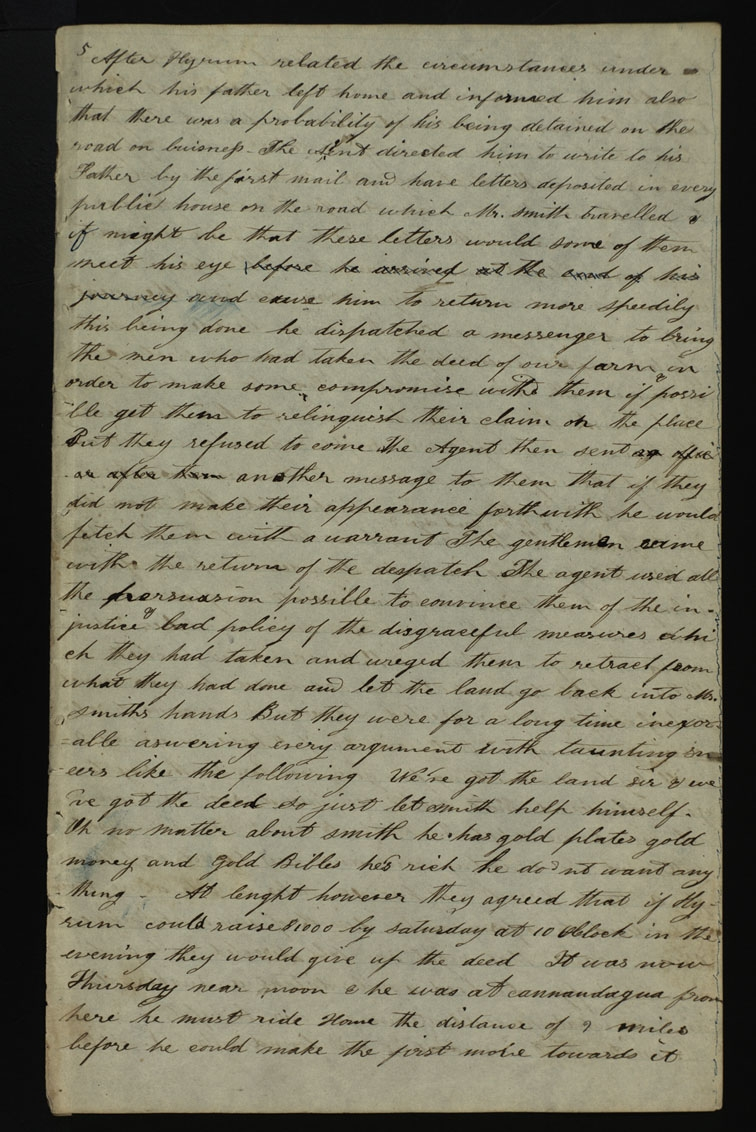 5 After Hyrum related the circumstances under
which his father left home and informed him also
that there was a probability of his being detained on the
road on buisness. The Agent directed him to write to his
Father by the first mail and have letters deposited in every
public house on the road which Mr. smith travelled &
it might be that these letters would some of them
meet his eye before he arrived at the end of his
journey and cause him to return more speedily
this being done he dispatched a messenger to bring
the men who had taken the deed of our farm in
order to make some compromise with them & if possi
ble get them to relinquish their claim on the place
But they refused to come the Agent then sent an offic
er after them another message to them that if they
did not make their appearance forthwith he would
fetch them with a warrant The gentlemen came
with the return of the despatch The agent used all
the persuasion possible to convince them of the in-
justice & bad policy of the disgraceful measures whi
ch they had taken and ureged them to retract from
what they had done and let the land go back into Mr.
smiths hands But they were for a long time inexor-
able aswering every argument with taunting sn
eers like the following We've got the land sir & we
've got the deed so just let smith help himself.
Oh no matter about smith he has gold plates gold
money and Gold Bibles he's rich he do'nt want any
thing - At lenght however they agreed that if Hy-
rum could raise $1000 by saturday at 10 oblock in the
evening they would give up the deed It was now
Thursday near noon & he was at cannandagua from
here he must ride Home the distance of 9 miles
before he could make the first move towards it